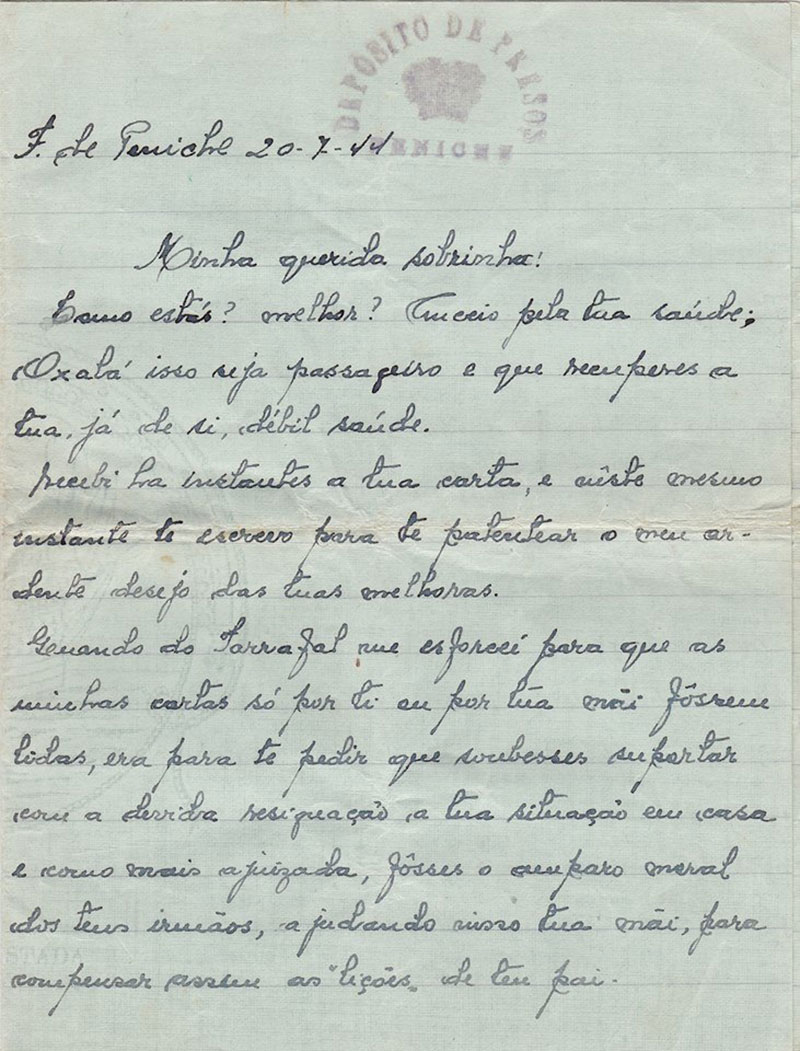 DEPÓSITO DE PRESOS
PENICHE
F. de Peniche 20-7-44
Minha querida sobrinha!
Como estás? melhor? Anceio pela tua saúde;
Oxalá isso seja passageiro e que recuperes a
tua, já de si, débil saúde.
Recebi ha instantes a tua carta, e nêste mesmo
instante te escrevo para te patentear o meu ar-
dente desejo das tuas melhoras.
Quando do Tarrafal me esforcei para que as
minhas cartas só por ti ou por tua mãi fôssem
lidas, era para te pedir que soubesses suportar
com a devida resignação a tua situação em casa
e como mais ajuizada, fôsses o amparo moral
dos teus irmãos, ajudando nisso tua mãi, para
compensar assim as "lições" de teu pai.